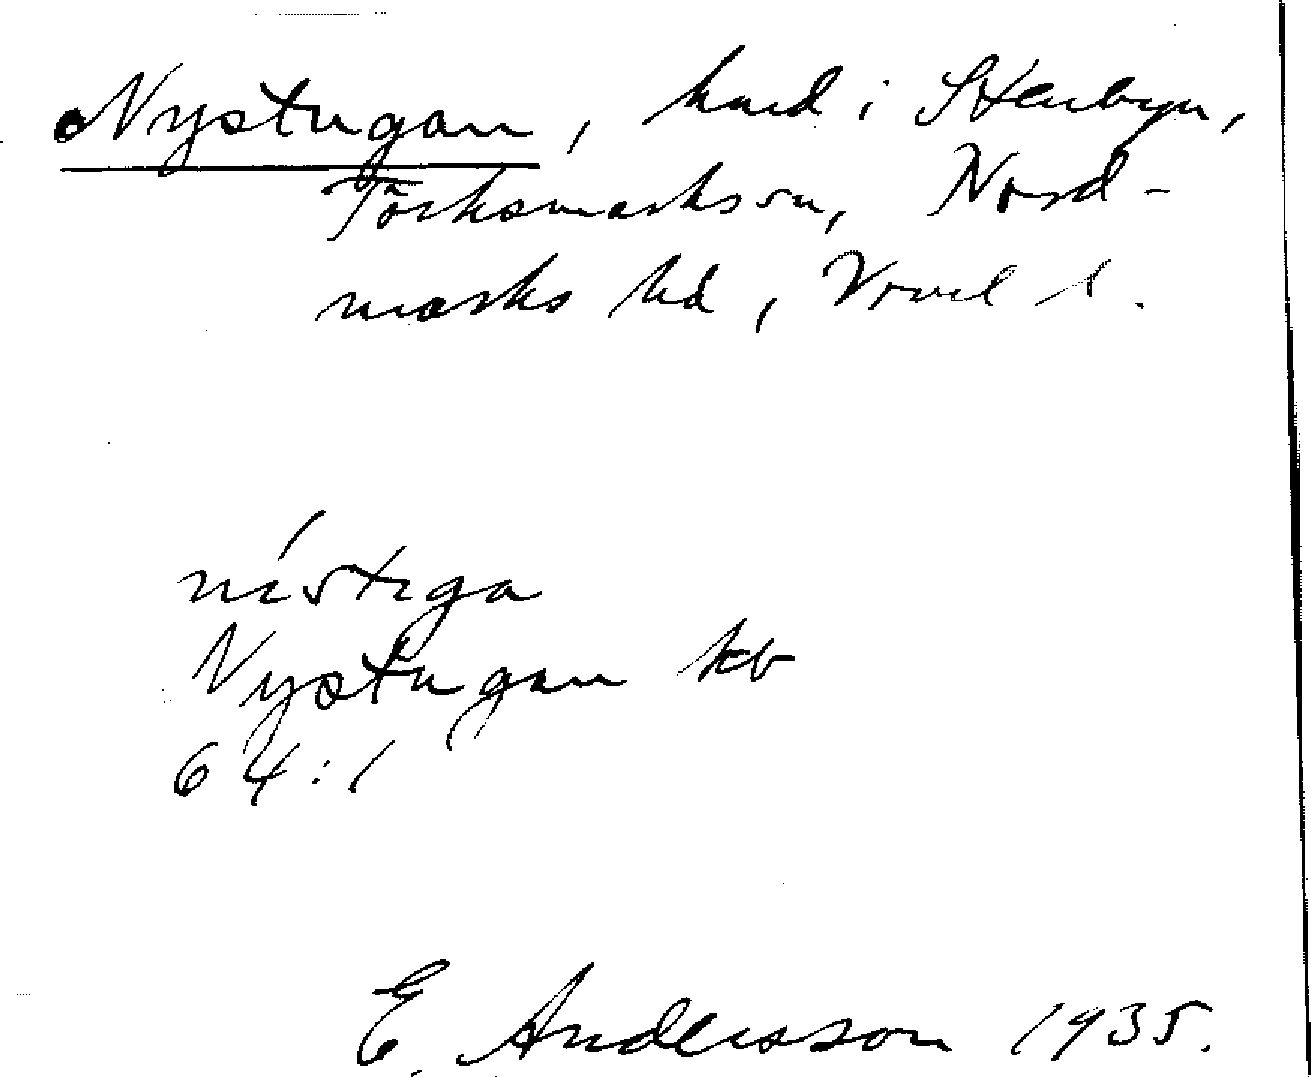 Nystugan, hmd i Stenbyn,
Töcksmarks sn, Nord-
marks hd, Vrml l.
nístiga
Nystugan kb
64:1
E. Andersson 1935.